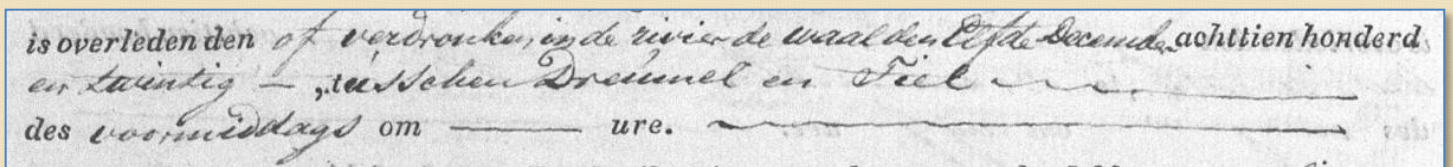 is overleden den of verdronken in de rivier de waal den Elfde December achttien honderd
en twintig — tusschen Dreumel en Tiel
des voormiddags om — ure.